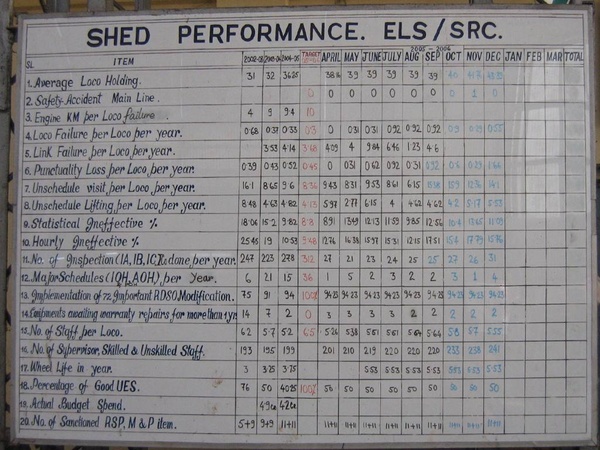 SHED PERFORMANCE. ELS/SRC.
2005 - 2006
SL ITEM 2002-03 2003-04 2004-05 TARGET APRIL MAY JUNE JULY AUG SEP OCT NOV DEC JAN FEB MAR TOTAL
1. Average Loco Holding. 31 32 36.25 39 39 39 39 39 40
2. Safety-Accident Main Line. 0 0 0 0 0 0 0 0 1 0
3. Engine KM per Loco failure. 4 9 9.4 10
4. Loco Failure per Loco per year. 0.68 0.37 0.33 0.3 0 0.31 0.31 0.92 0.92 0.92 0.9 0.29 0.55
5. Link Failure per Loco per year. 3.53 4.14 3.48 4.09 4 5.84 6.46 1.23 4.6
6. Punctuality Loss per Loco per year. 0.39 0.43 0.52 0.45 0 0.31 0.62 0.92 0.31 0.92 0.6
7. Unschedule visit per Loco per year. 16.1 8.65 9.6 8.36 9.43 8.31 9.53 8.61 6.15 15.9 12.36 14.1
8. Unschedule Lifting per Loco per year. 8.48 4.63 4.82 4.13 5.97 2.77 6.15 4 4.62 4.62 4.2 5.17 5.53
9. Statistical Ineffective % 18.06 15.2 9.82 8.8 8.91 13.49 12.13 11.59 9.85 12.56 10.4 13.65 11.09
10. Hourly Ineffective % 25.45 19 10.53 9.48 12.74 16.38 15.97 15.31 12.15 17.51 15.4 17.79 15.76
11. No. of Inspection (IA, IB, IC) & done per year. 247 223 278 312 27 21 23 24 25 25 27 26 31
12. Major Schedules (IOH, AOH) per Year. 6 21 15 36 1 5 2 3 2 2 3 1 4
13. Implementation of 72 Important R.D.S.O. Modification. 75 91 94 100% 94.23 94.23 94.23 94.23 94.23 94.23 94.23 94.23 94.23
14. Equipments awaiting warranty repairs for more than 1 yrs 14 7 2 0 3 3 3 2 2 2 2 2 2
15. No. of Staff per Loco. 6.2 5.7 5.2 6.5 5.26 5.38 5.61 5.61 5.64 5.64 5.8 5.7 5.55
16. No. of Supervisor, Skilled & Unskilled Staff. 193 195 199 201 210 219 220 220 220 233 238 241
17. Wheel Life in year. 3 3.25 3.75 5.53 5.53 5.53 5.53 5.53 5.53 5.53
18. Percentage of Good UES. 76 50 40.25 100% 50 50 50 50 50 50 50 50 50
19. Actual Budget Spend. 49cr 42cr
20. No. of Sanctioned R.S.P., M & P item. 5+9 9+9 11+11 11+11 11+11 11+11 11+11 11+11 11+11 11+11 11+11 11+11